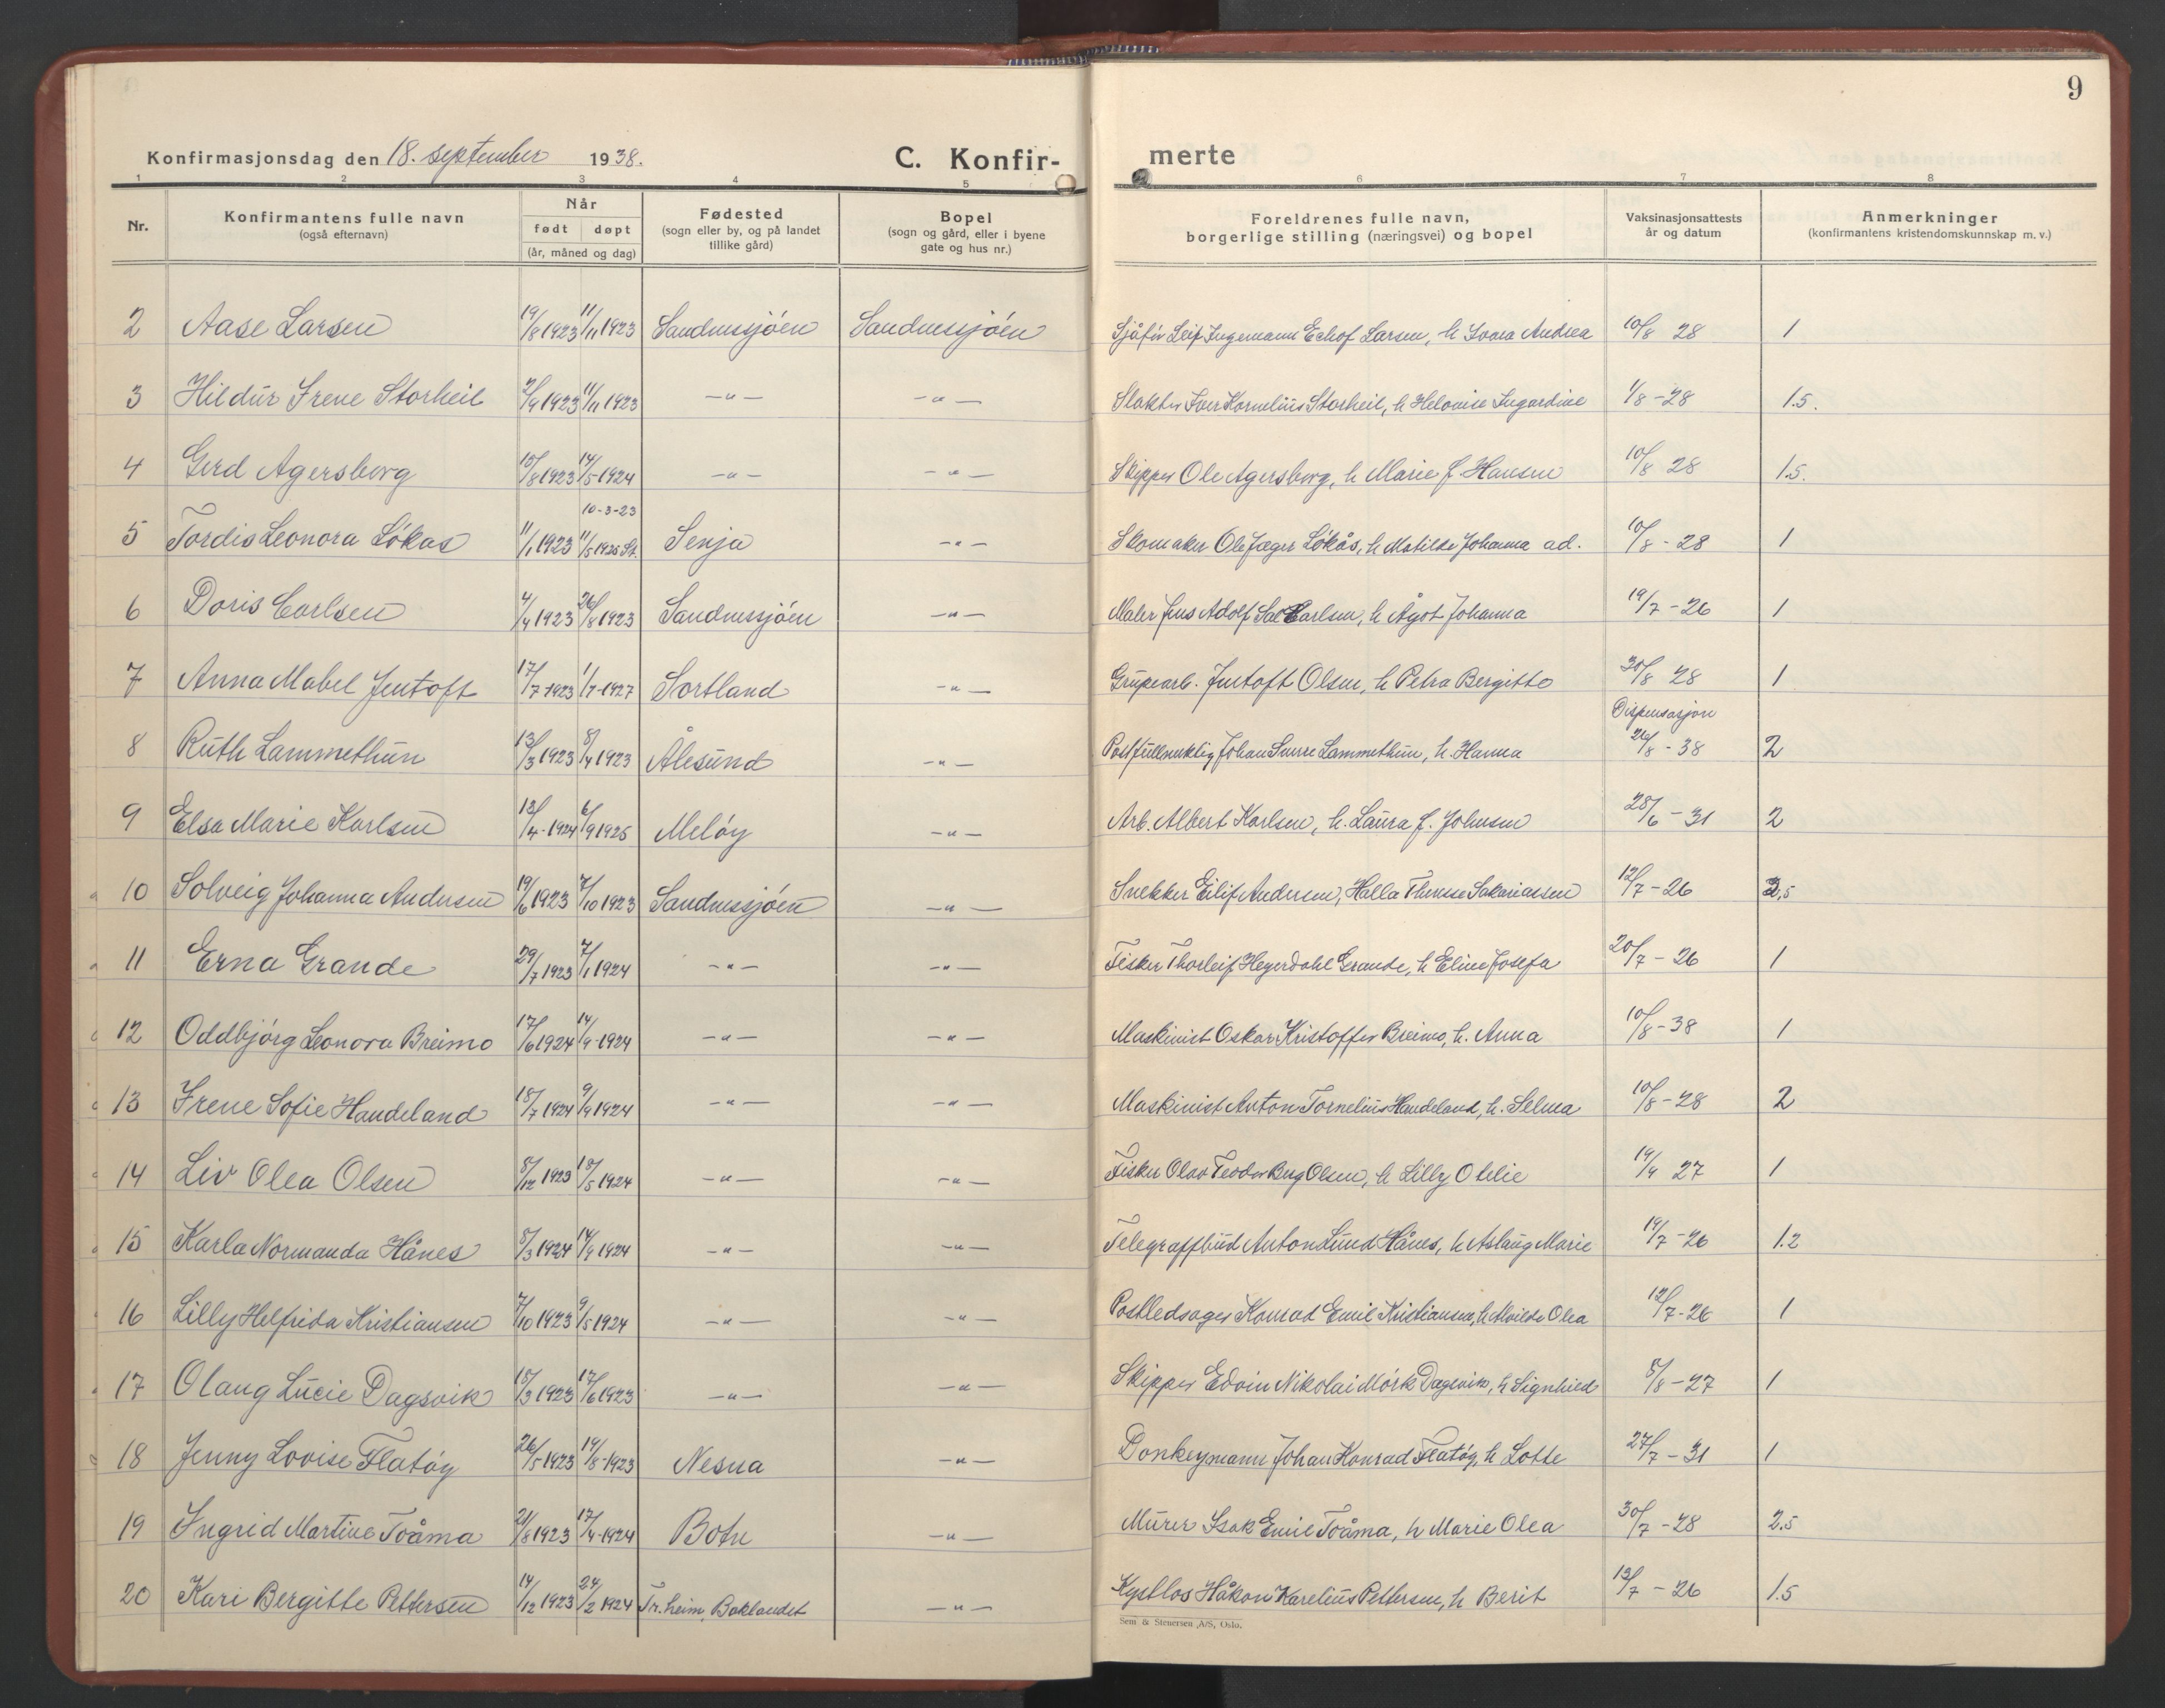 9
Konfirmasjonsdag den 18. september 1938. C. Konfir- merte
1 2 3 4 5 6 7 8
Nr. Konfirmantens fulle navn (også efternavn) Når født døpt (år, måned og dag) Fødested (sogn eller by, og på landet tillike gård) Bopel (sogn og gård, eller i byene gate og hus nr.) Foreldrenes fulle navn, borgerlige stilling (næringsvei) og bopel Vaksinasjonsattests år og datum Anmerkninger (konfirmantens kristendomskunnskap m. v.)
2 Aase Larsen 19/8 1923 11/11 1923 Sandnessjöen Sandnessjöen Sjåfør Leif Ingemann Larsen, h Andrea 10/8 28 1
3 Hildur Irene Storheil 2/9 1923 11/11 1923 -"- -"- Slakter Iver Kornelius Storheil, h Helovise Ingardine 1/8 - 28 1.5.
4 Gerd Agersborg 15/8 1923 14/5-1924 -"- -"- Skipper Ole Agersborg, h Marie f. Hansen 10/8 28 1.5.
10-3-23
5 Tordis Leonora Lökas 11/1 1923 11/5 1925 St. Senja -"- Skomaker Ole Jæger Lökås, h Matilde Johanna ad. 10/8 - 28 1
6 Doris Carlsen 4/4 1923 26/8 1923 Sandnessjöen -"- Maler Jens Adolf Carlsen, h Ågot Johanna 19/7 - 26 1
7 Anna Mabel Jentoft 17/7 1923 1/7-1927 Sortland -"- Grupearb. Jentoft Olsen, h Petra Bergitte 31/8 28 1
Dispensasjon
8 Ruth Lammethun 13/3 1923 8/4 1923 Ålesund -"- Postfullmektig Johan Snurre Lammethun, h. Hanna 26/8 - 38 2
9 Elsa Marie Karlsen 13/4-1924 6/9 1925 Melöy -"- Arb. Albert Karlsen, h. Laura f. Johnsen 28/6 - 31 2
10 Solveig Johanna Andersen 19/6 1923 7/10 1923 Sandnessjöen -"- Snekker Eilif Andersen, Halla Therese Sakariassen 12/7 - 26 2,5
11 Erna Grande 29/7 1923 7/1 1924 -"- -"- Fisker Thorleif Heyerdahl Grande, h Eline Josefa 20/7 - 26 1
12 Oddbjörg Leonora Breimo 17/6 1924 14/9-1924 -"- -"- Maskinist Oskar Kristoffer Breimo, h. Anna 10/8 - 38 1
13 Irene Sofie Handeland 18/7 1924 9/9 1924 -"- -"- Maskinist Anton Tornelius Handeland, h. Selma 10/8 - 28 2
14 Liv Olea Olsen 8/12 1923 18/5 1924 -"- -"- Fisker Olav Teodor Berg Olsen, h Lilly Otelie 19/9 27 1
15 Karla Normanda Hånes 8/3 1924 14/9 1924 -"- -"- Telegrafbud Anton Lund Hånes, h Aslaug Marie 19/7 - 26 1.2
16 Lilly Helfrida Kristiansen 7/10 1923 9/5 1924 -"- -"- Postledsager Konrad Emil Kristiansen, h Alvilde Olea 12/7 - 26 1
17 Olaug Lucie Dagsvik 18/3 1923 17/6 1923 -"- -"- Skipper Edvin Nikolai Mörk Dagsvik, h Signhild 5/8 - 27 1
18 Jenny Lovise Flatöy 26/5 1923 19/8-1923 Nesna -"- Donkeymann Johan Konrad Flatöy, h Lotte 27/7 - 31 1
19 Ingrid Martine Toåma 21/8 1923 17/4-1924 Botn -"- Murer Isak Emil Toåma, h Marie Olea 30/7 - 28 2.5
20 Kari Bergitte Pettersen 14/12 1923 24/2 1924 Tr.heim, Baklandet -"- Kystlos Håkon Karelius Pettersen, h Berit 13/7 - 26 1.5
Sem & Stenersen A/S, Oslo.